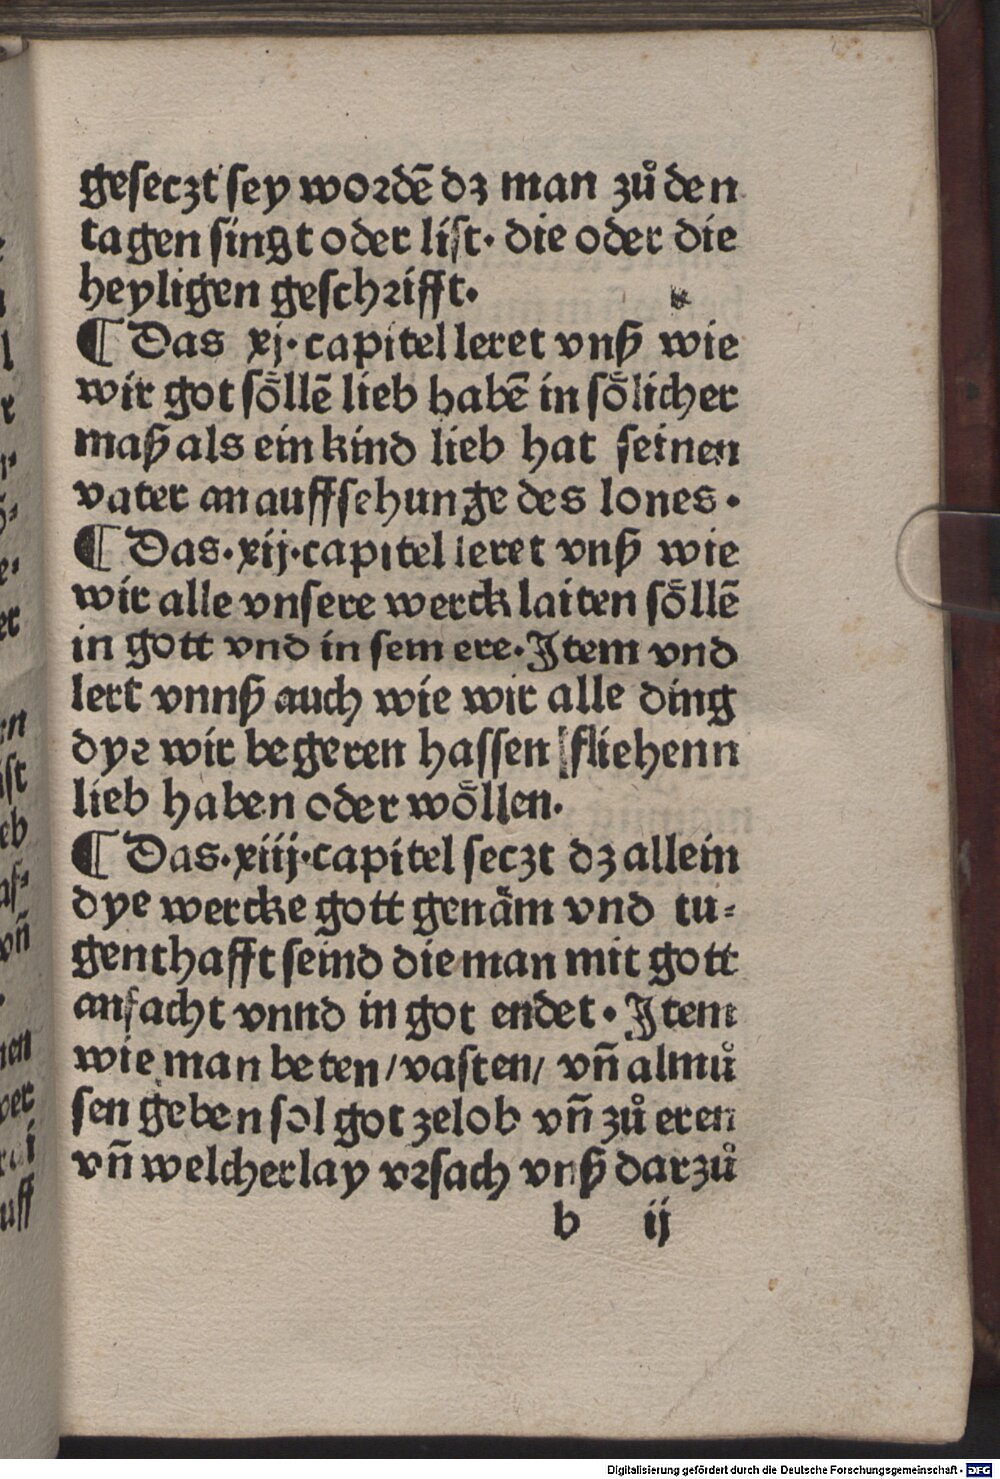 geseczt sey wordē dz man zuͦ den
tagen singt oder list. die oder die
heyligen geschrifft.
¶ Das xj. capitel leret vnß wie
wir got soͤllē lieb habē in soͤlicher
maß als ein kind lieb hat seinen
vater an auffsehunge des lones.
¶ Das.xij.capitel leret vnß wie
wir alle vnsere werck laiten soͤllē
in gott vnd in sein ere. Item vnd
lert vnnß auch wie wir alle ding
dye wir begeren hassen fliehenn
lieb haben oder woͤllen.
¶ Das.xiij.capitel seczt dz allein
dye wercke gott genäm vnd tu⸗
genthafft seind die man mit gott
anfacht vnnd in got endet. Item
wie man beten/vasten/ vn̄ almuͦ
sen geben sol got zelob vn̄ zuͦ eren
vn̄ welcherlay vrsach vnß darzuͦ
b ij
Digitalisierung gefördert durch die Deutsche Forschungsgemeinschaft - DFG